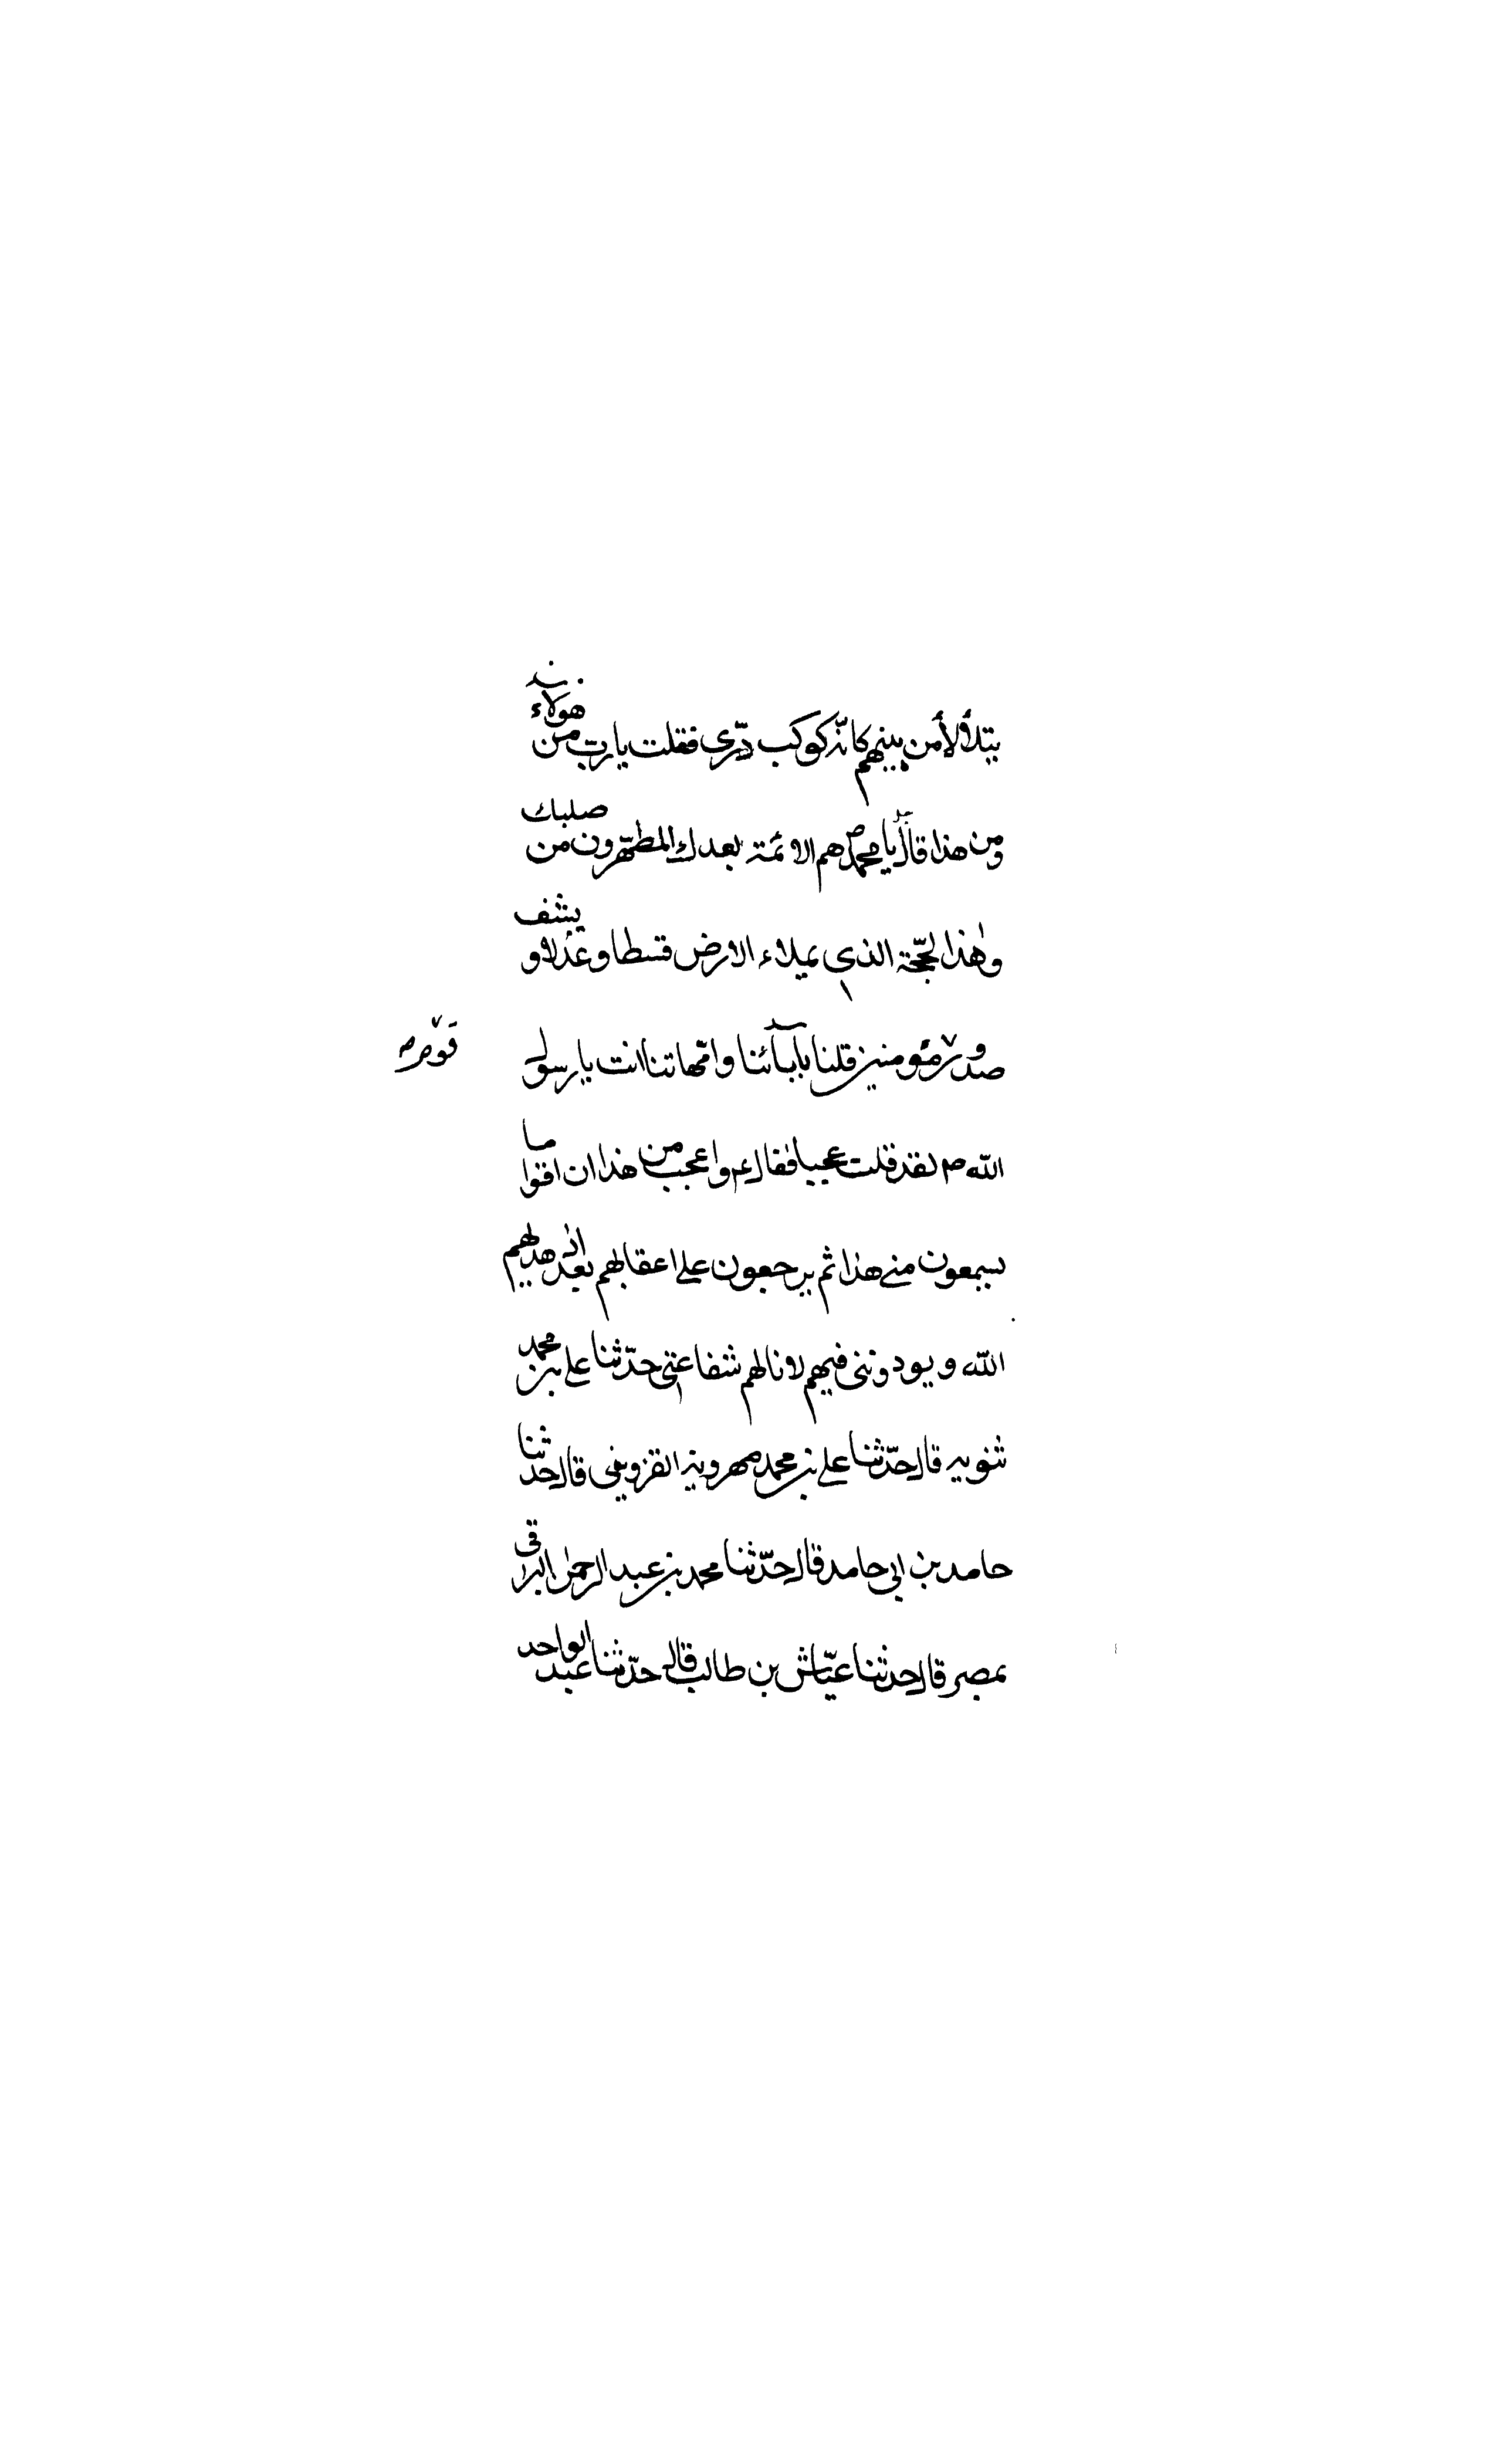 يتلألأ من بينهم كانّه كوكب درّى فقلت يا رب من هولاء
ومن هذا قال يا محمد ص هم الائمة بعدك المطهّرون من صلبك
وهذا لحجّة الذى يملاء الارض قسطا وعدلا و يشف
صدور مؤمنين قلنا بابآئنا وامّهاتنا انت يا رسول
الله ص لقد قلت عجبا فقال ع واعجب من هذا ان اقواما
يسمعون منى هذا ثم يرجعون على اعقابهم بعد اذ هديهم
الله ويوذونى فيهم لا نالهم شفاعتى حدّثنا على بن محمد
شنويه قال حدّثنا على بن محمد مهرويه القزوينى قال حدثنا
حامد بن ابى حامد قال حدّثنا محمد بن عبد الرحمن البراقى
بمصر قال حدثنا عيّاش بن طالب قال حدّثنا عبد الواحد